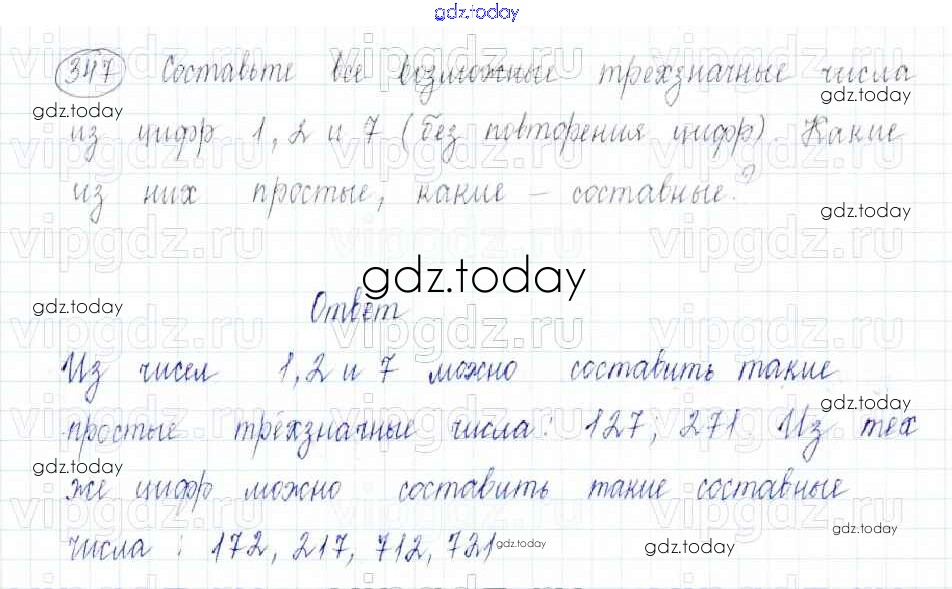 gdz.today
347 Составьте все возможные трехзначные числа
gdz.today
gdz.today
из цифр 1, 2 и 7 (без повторения цифр). Какие
из них простые, какие – составные?
gdz.today
vipgdz.ru vipgdz.ru vipgdz.ru
gdz.today
gdz.today
Ответ
vipgdz.ru vipgdz.ru vipgdz.ru
Из чисел 1, 2 и 7 можно составить такие
gdz.today
простые трёхзначные числа: 127; 271. Из тех
gdz.today
же цифр можно составить такие составные
gdz.today
числа : 172, 217, 712, 721
gdz.today
gdz.today